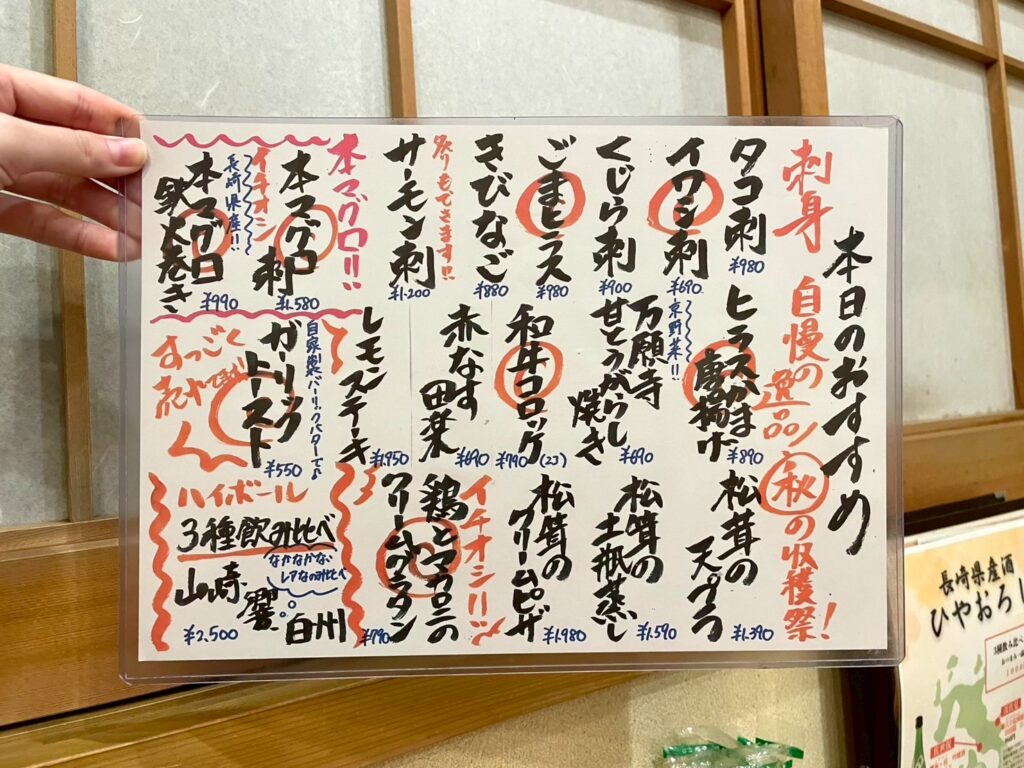 本日のおすすめ
刺身
タコ刺
¥980
イワシ刺
¥690
くじら刺
¥900
ごまヒラス
¥980
きびなご
¥880
炙りもできます!!
サーモン刺
¥1.200
本マグロ!!
本マグロ刺
¥1.580
イチオシ
長崎県産!!
本マグロ
鉄火巻き
¥990
自慢の逸品
ヒラスかま
唐揚げ
¥890
京野菜!!
万願寺
甘とうがらし
焼き
¥690
和牛コロッケ
¥790 (2コ)
赤なす
田楽
¥690
レモンステーキ
¥1.950
自家製ガーリックバターで♪
ガーリック
トースト
¥550
すっごく
秋の収穫祭!
松茸の
天ぷら
¥1.390
松茸の
土瓶蒸し
¥1.590
松茸の
クリームピザ
¥1.980
イチオシ!!
鶏とマカロニの
クリームグラタン
¥790
ハイボール
3種飲み比べ
なかなかない
レアなのみ比べ
山崎
響
白州
¥2.500
長崎県産酒
ひやおろし